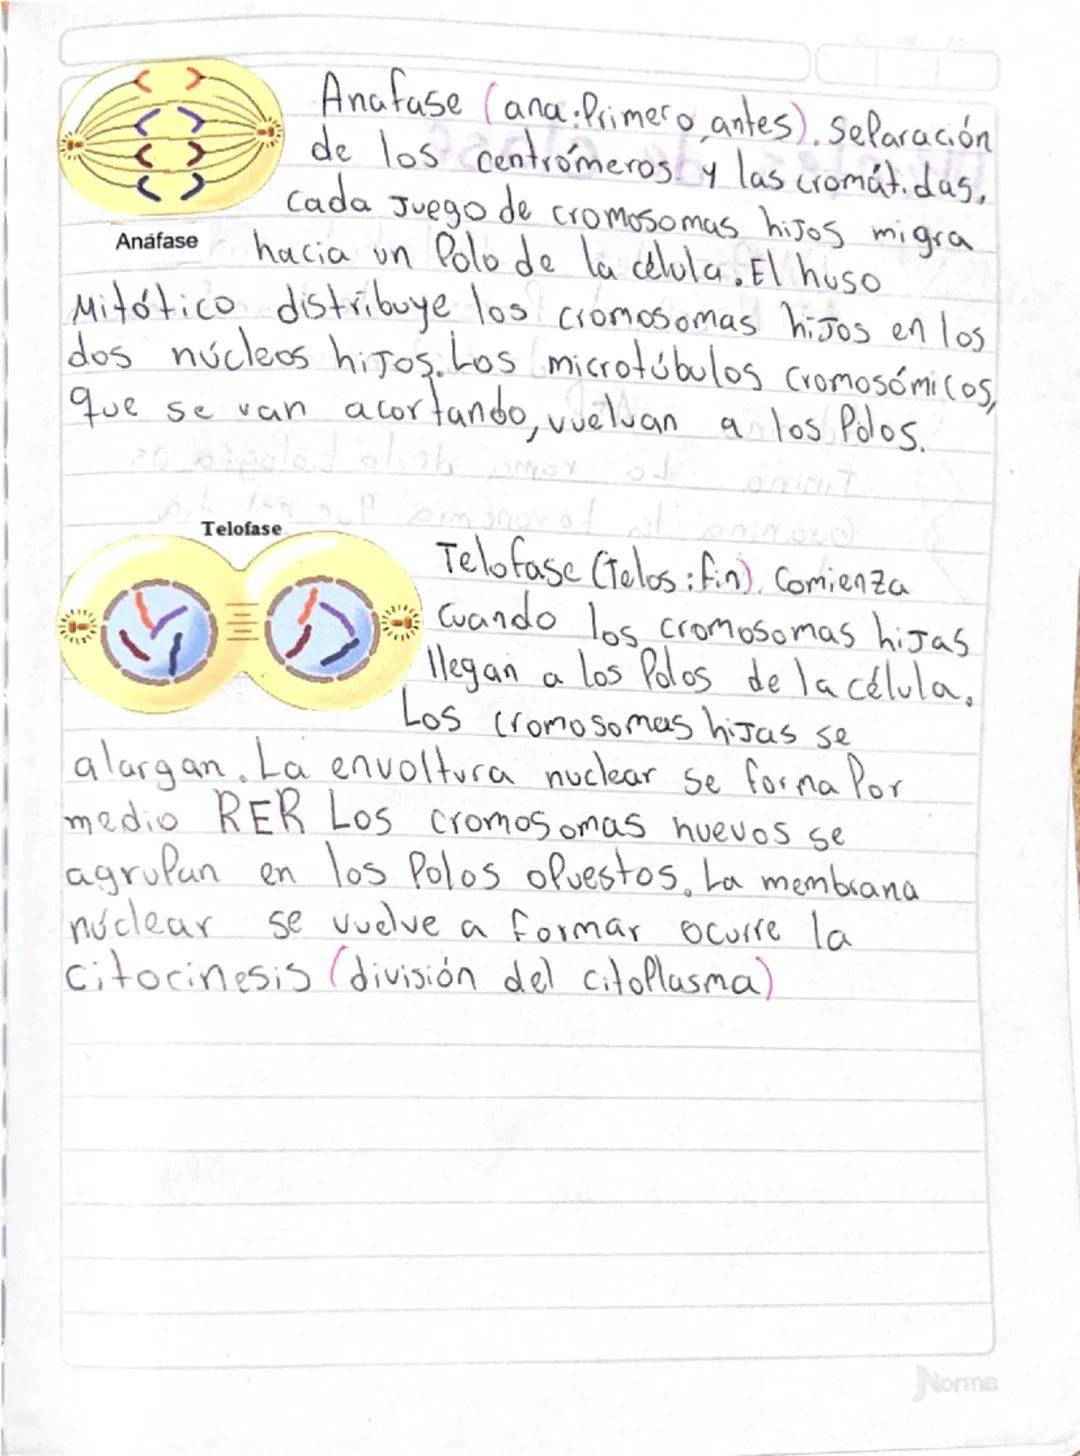 Anafase (ana:Primero, antes). Separación
de los centrómeros y las cromátidas,
cada Juego de cromosomas hiJos migra
Anáfase
hacia un Polo de la célula. El huso
Mitótico distribuye los cromosomas hiJos en los
dos núcleos hiJos. Los microtúbulos cromosómicos,
que se van acortando, vuelvan a los Polos.
Telofase
Telofase (Telos:fin). Comienza
cuando los cromosomas hiJas
llegan a los Polos de la célula.
Los cromosomas hiJas se
alargan. La envoltura nuclear se forma Por
medio RER Los cromosomas nuevos se
agruPan en los Polos oPuestos. La membrana
núclear se vuelve a formar ocurre la
citocinesis (división del citoPlasma)
Norma